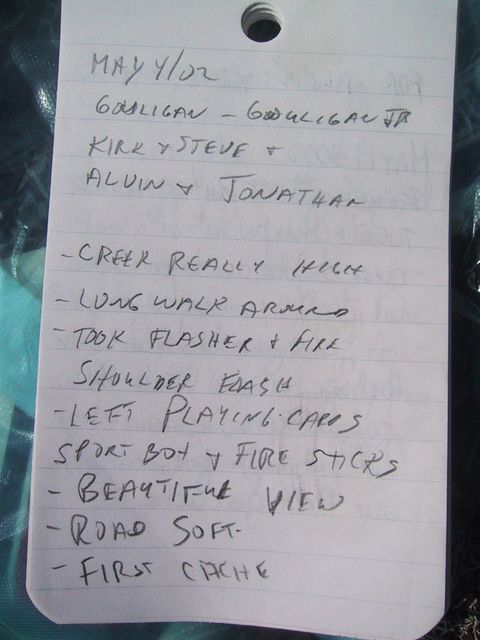 MAY 4/02
GOULIGAN - GOOULIGAN JR
KIRK & STEVE &
ALVIN & JONATHAN
- CREEK REALLY HIGH
- LONG WALK AROUND
- TOOK FLASHER & FIRE
SHOULDER FLASH
- LEFT PLAYING-CARDS
SPORT BOY & FIRE STICKS
- BEAUTIFUL VIEW
- ROAD SOFT.
- FIRST CACHE